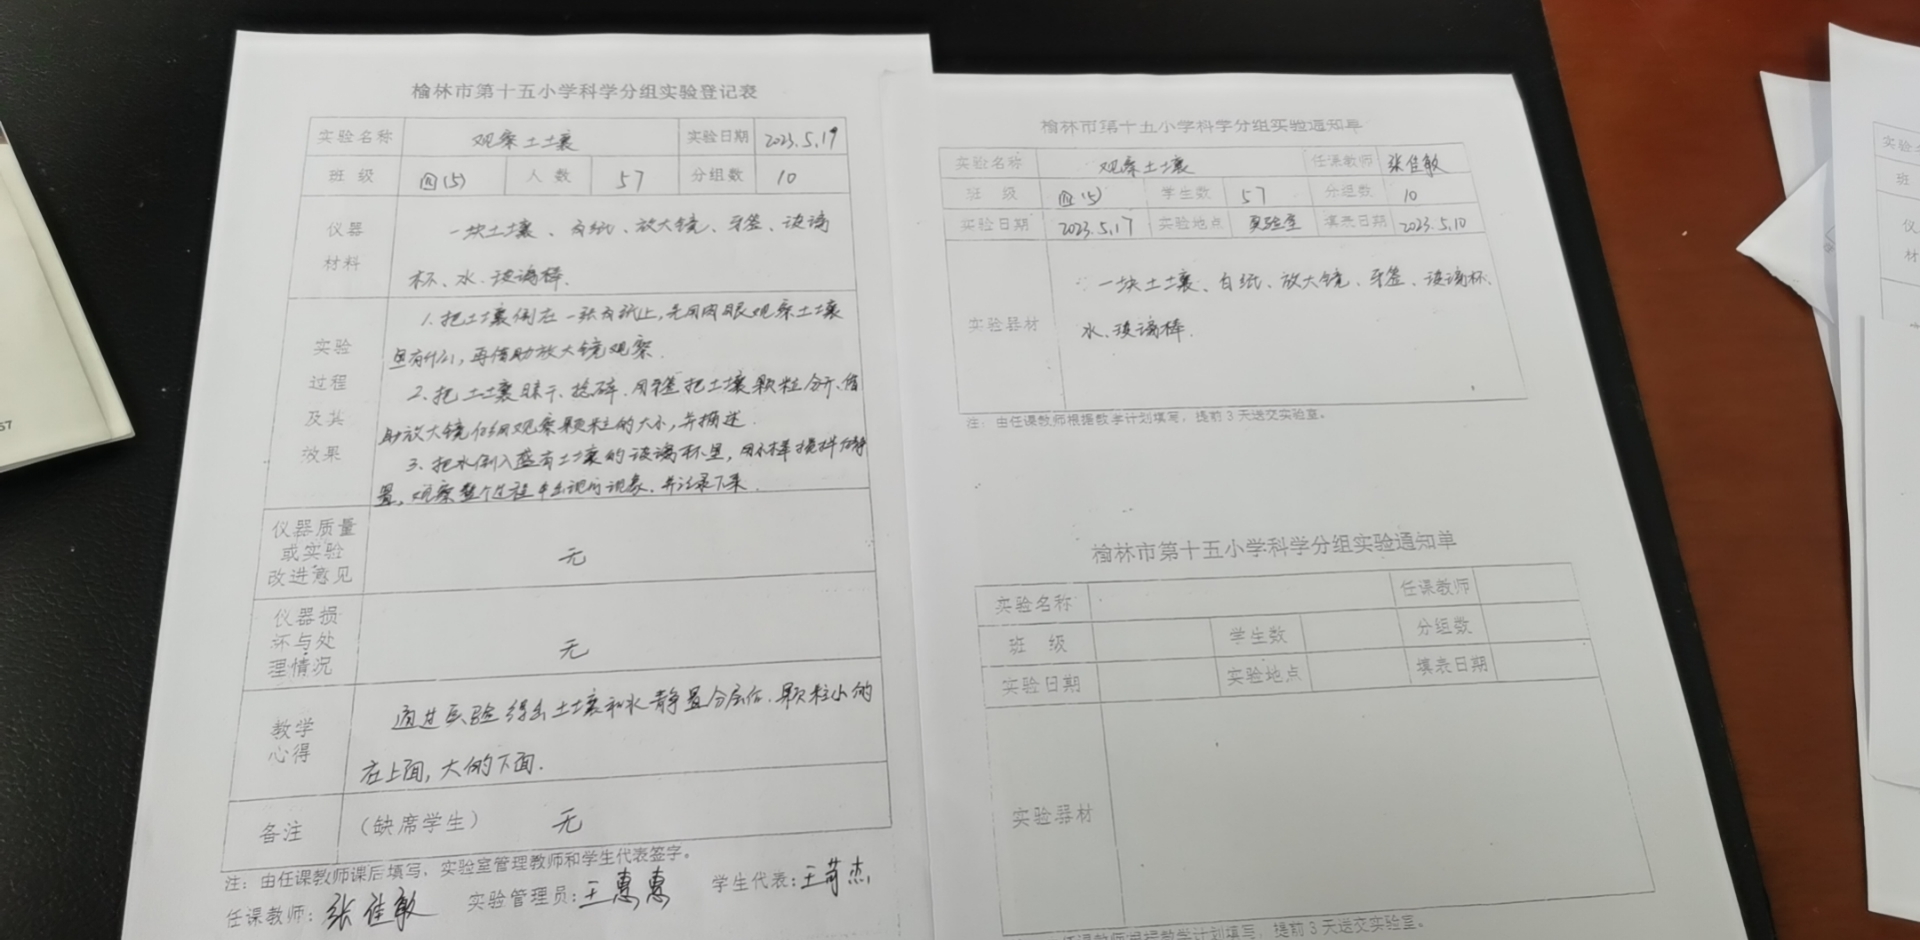 榆林市第十五小学科学分组实验登记表
实验名称 观察土壤 实验日期 2023.5.19
班 级 四(5) 人 数 57 分组数 10
仪器
材料
一块土壤、白纸、放大镜、牙签、玻璃
杯、水、玻璃棒.
实验
过程
及其
效果
1.把土壤倒在一张白纸上,先用肉眼观察土壤
里有什么,再借助放大镜观察.
2.把土壤晾干、捻碎.用牙签把土壤颗粒分开.借
助放大镜仔细观察颗粒的大小,并描述.
3.把水倒入盛有土壤的玻璃杯里,用木棒搅拌
置,观察整个过程中出现的现象.并记录下来.
仪器质量
或实验
改进意见
无
仪器损
坏与处
理情况
无
教学
心得
通过实验得出土壤和水静置分层后.颗粒小的
在上面,大的下面.
备注 (缺席学生) 无
注:由任课教师课后填写,实验室管理教师和学生代表签字。
任课教师: 张佳敏 实验管理员: 王惠惠 学生代表: 王 杰
榆林市第十五小学科学分组实验通知单
实验名称 观察土壤 任课教师 张佳敏
班 级 四(5) 学生数 57 分组数 10
实验日期 2023.5.17 实验地点 实验室 填表日期 2023.5.10
实验器材
一块土壤、白纸、放大镜、牙签、玻璃杯、
水、玻璃棒.
注:由任课教师根据教学计划填写,提前3天送交实验室。
榆林市第十五小学科学分组实验通知单
实验名称 任课教师
班 级 学生数 分组数
实验日期 实验地点 填表日期
实验器材
任课教师根据教学计划填写,提前3天送交实验室。
57
实验
班
仪
材